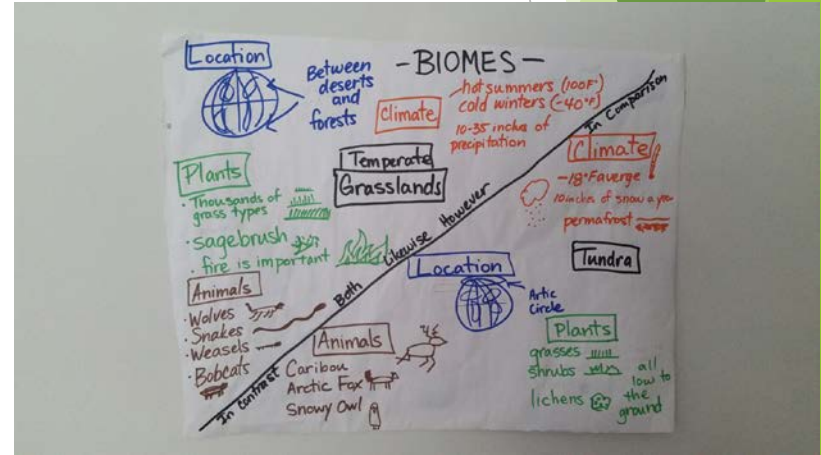 -BIOMES-
Location
Between
deserts
and
forests
Climate
hot summers (100F°)
cold winters (-40°F)
10-35 inches of
precipitation
Temperate
Grasslands
Plants
· Thousands of
grass types
· sagebrush
· fire is important
Animals
· Wolves
· Snakes
· Weasels
· Bobcats
In contrast
Both
Likewise
However
In Comparison
Climate
-18°F averge
10 inches of snow a year
permafrost
Tundra
Location
Artic
Circle
Plants
grasses
shrubs
lichens
all
low to
the
ground
Animals
Caribou
Arctic Fox
Snowy Owl